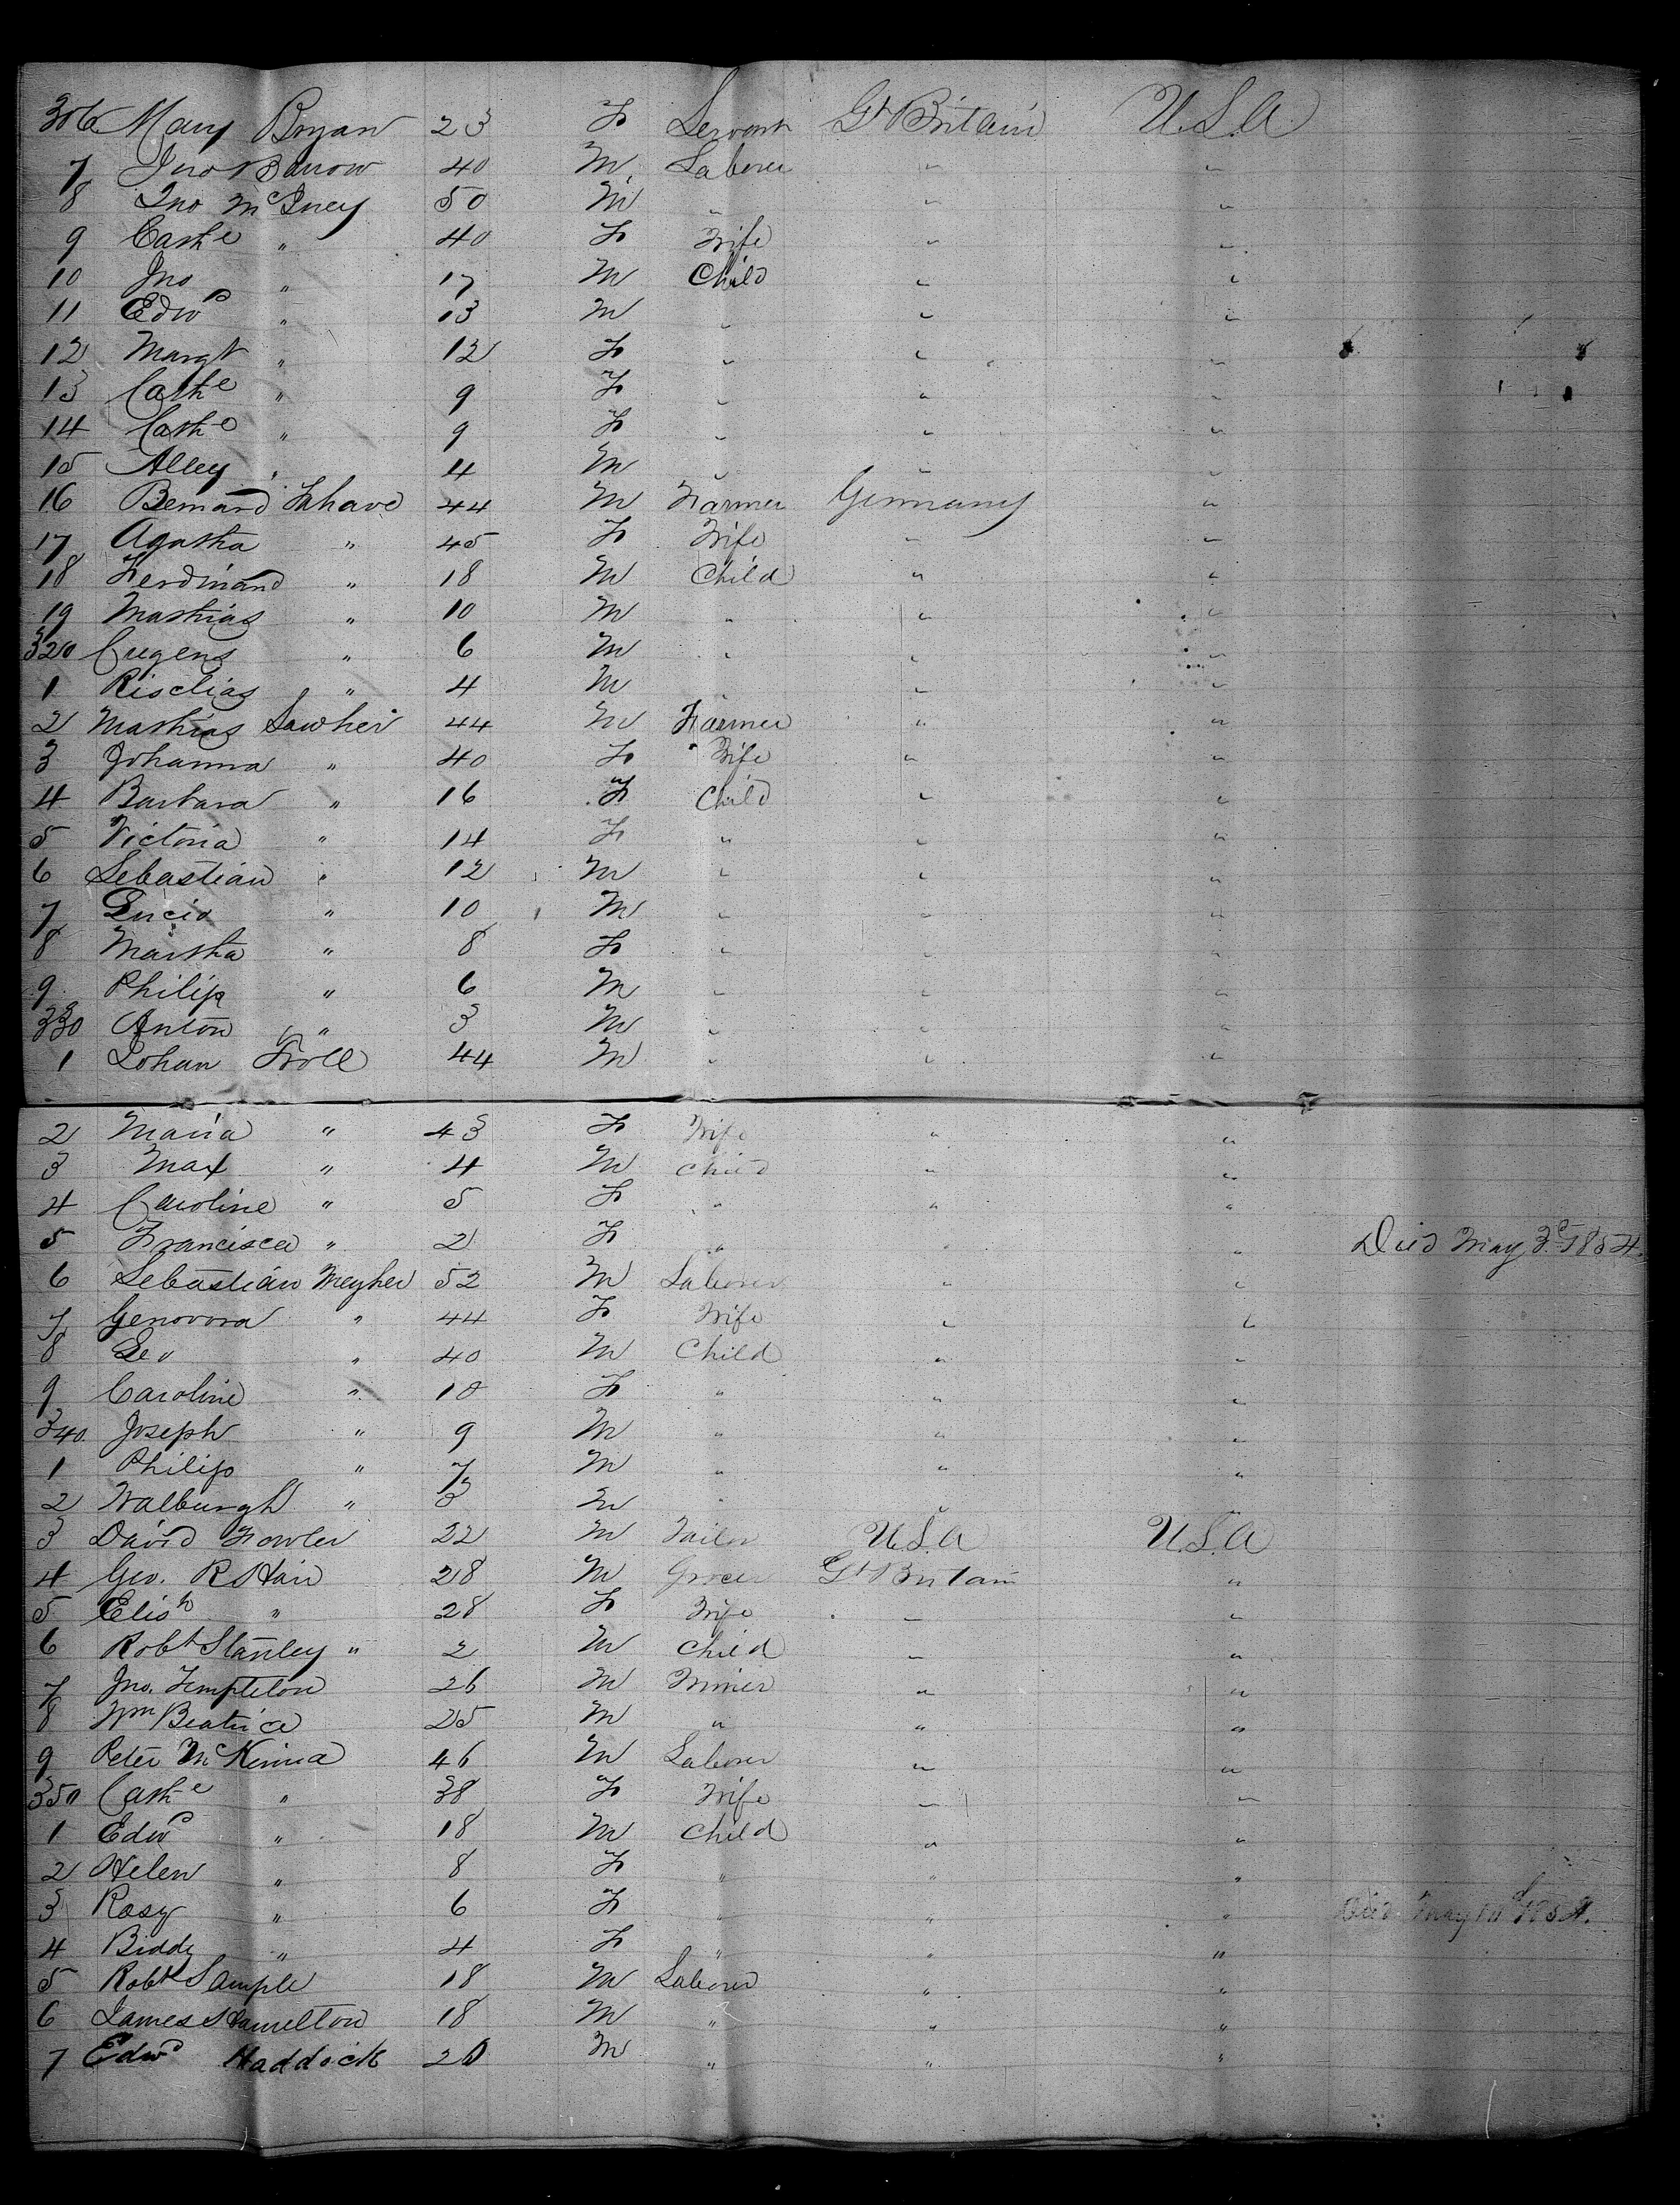 306 Mary Bryan 23 F Servant Gt Britain U.S.A.
7 Jno Barrow 40 M Laborer " "
8 Jno McIney 50 M " " "
9 Cathe " 40 F Wife " "
10 Jno " 17 M Child " "
11 Edwd " 13 M " " "
12 Margt " 12 F " " "
13 Cathe " 9 F " " "
14 Cathe " 9 F " " "
15 Alley " 4 M " " "
16 Bernard Fahave 44 M Farmer Germany "
17 Agatha " 45 F Wife " "
18 Ferdinand " 18 M Child " "
19 Mathias " 10 M " " "
320 Cugens " 6 M " " "
1 Risclias " 4 M " " "
2 Mathias Sawher 44 M Farmer " "
3 Johanna " 40 F Wife " "
4 Barbara " 16 F Child " "
5 Victoria " 14 F " " "
6 Sebastian " 12 M " " "
7 Lucid " 10 M " " "
8 Martha " 8 F " " "
9 Philip " 6 M " " "
330 Anton " 3 M " " "
1 Johan Troll 44 M " " "
2 Maria " 43 F Wife " "
3 Max " 4 M Child " "
4 Caroline " 5 F " " "
5 Francisca " 2 F " " " Died May 3d 1854.
6 Sebastian Meyher 52 M Laborer " "
7 Genovora " 44 F Wife " "
8 Leo " 40 M Child " "
9 Caroline " 10 F " " "
340 Joseph " 9 M " " "
1 Philip " 7 M " " "
2 Walburgh " 3 M " " "
3 David Fowler 22 M Tailor U.S.A U.S.A
4 Geo. R Hair 28 M Grocer Gt Britain "
5 Elish " 28 F Wife " "
6 Robt Stanley " 2 M Child " "
7 Jno. Templeton 26 M Miner " "
8 Wm Beatrice 25 M " " "
9 Peter McKinna 46 M Laborer " "
350 Cathe " 38 F Wife " "
1 Edwd " 18 M Child " "
2 Helen " 8 F " " "
3 Rosy " 6 F " " " Died May 1854.
4 Biddy " 4 F " " "
5 Robt Sample 18 M Laborer " "
6 James Hamelton 18 M " " "
7 Edwd Haddock 20 M " " "